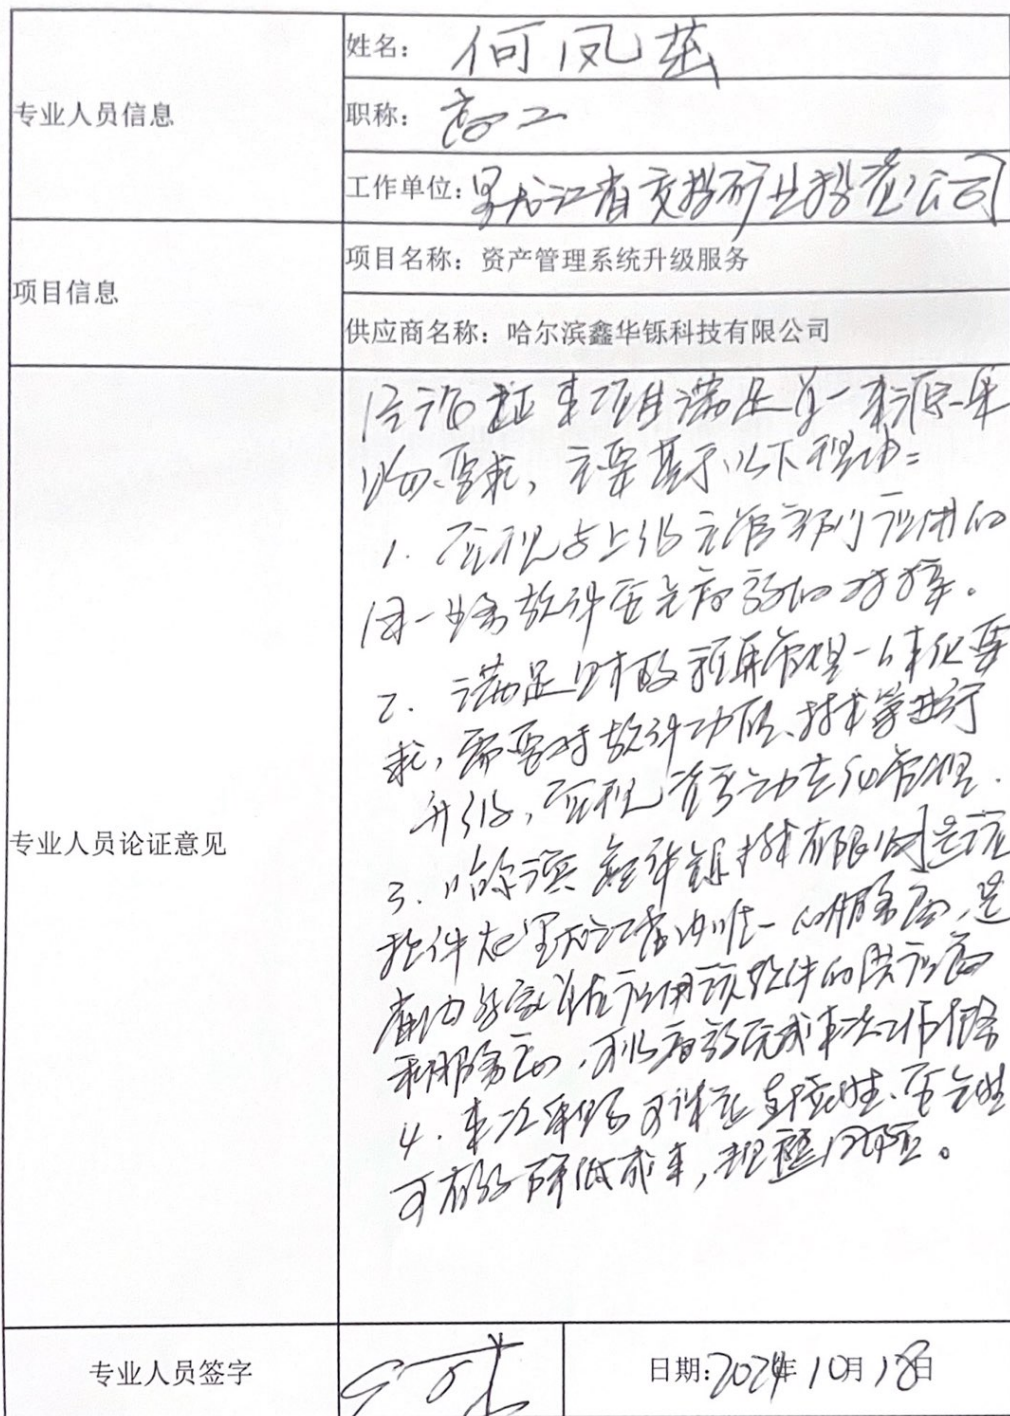 专业人员信息
姓名：何凤英
职称：高工
工作单位：黑龙江省交投矿业投资公司
项目信息
项目名称：资产管理系统升级服务
供应商名称：哈尔滨鑫华铄科技有限公司
专业人员论证意见
经论证本项目满足单一来源采
购要求，主要基于以下理由：
1. 实现与上级主管部门应用的
同一业务软件安全有效的对接。
2. 满足财政预算管理一体化要
求，需要对软件功能、技术等进行
升级，实现资产动态化管理.
3. 哈尔滨鑫华铄科技有限公司是该
软件在黑龙江省内唯一的服务商，是
省内多家单位应用该软件的供应商
和服务商，可以有效完成本次工作任务
4. 本次采购可保证 安全性
可有效降低成本，规避风险。
专业人员签字
日期:2024年10月18日